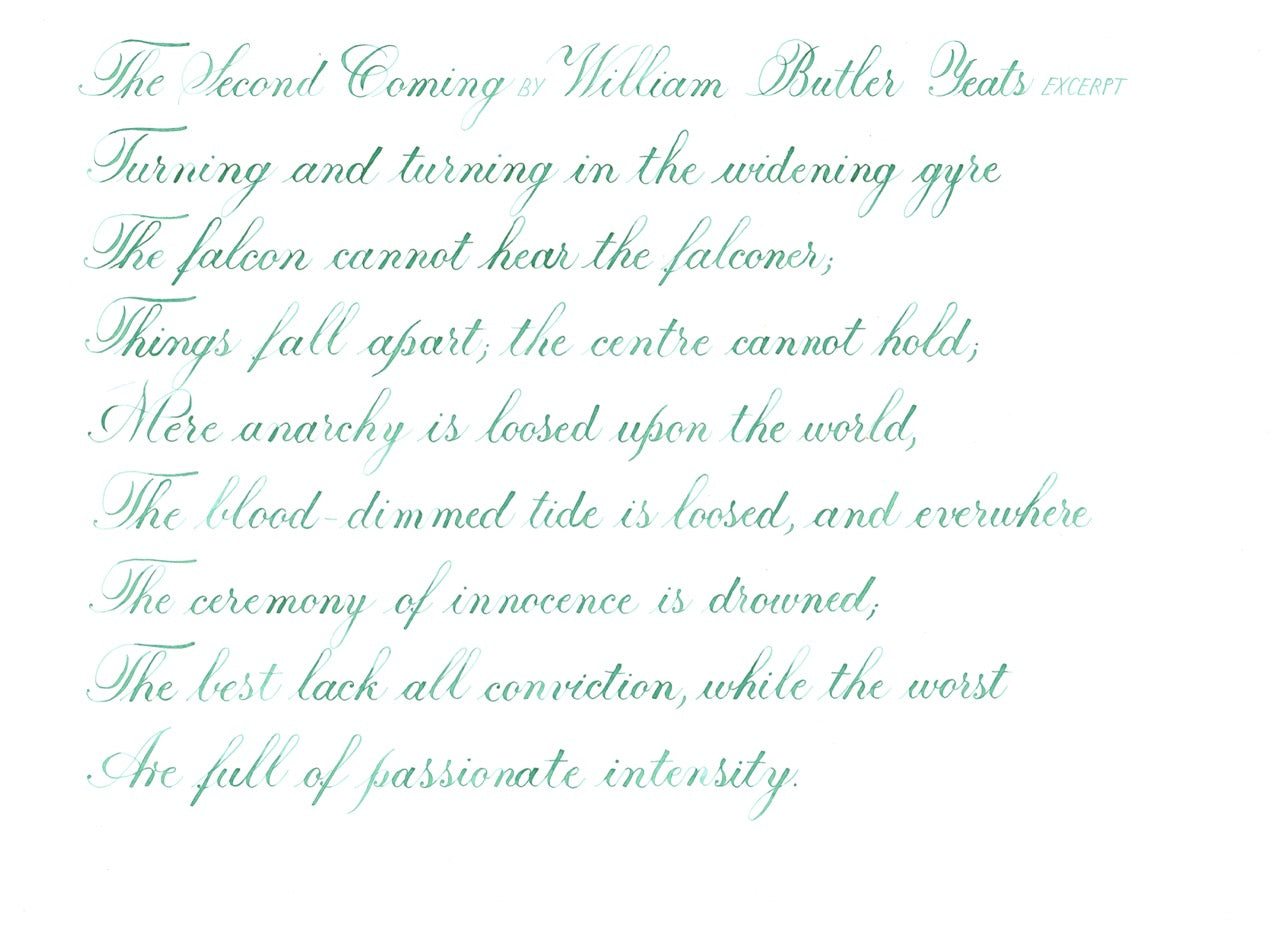 The Second Coming BY William Butler Yeats EXCERPT
Turning and turning in the widening gyre
The falcon cannot hear the falconer;
Things fall apart; the centre cannot hold;
Mere anarchy is loosed upon the world,
The blood-dimmed tide is loosed, and everwhere
The ceremony of innocence is drowned;
The best lack all conviction, while the worst
Are full of passionate intensity.